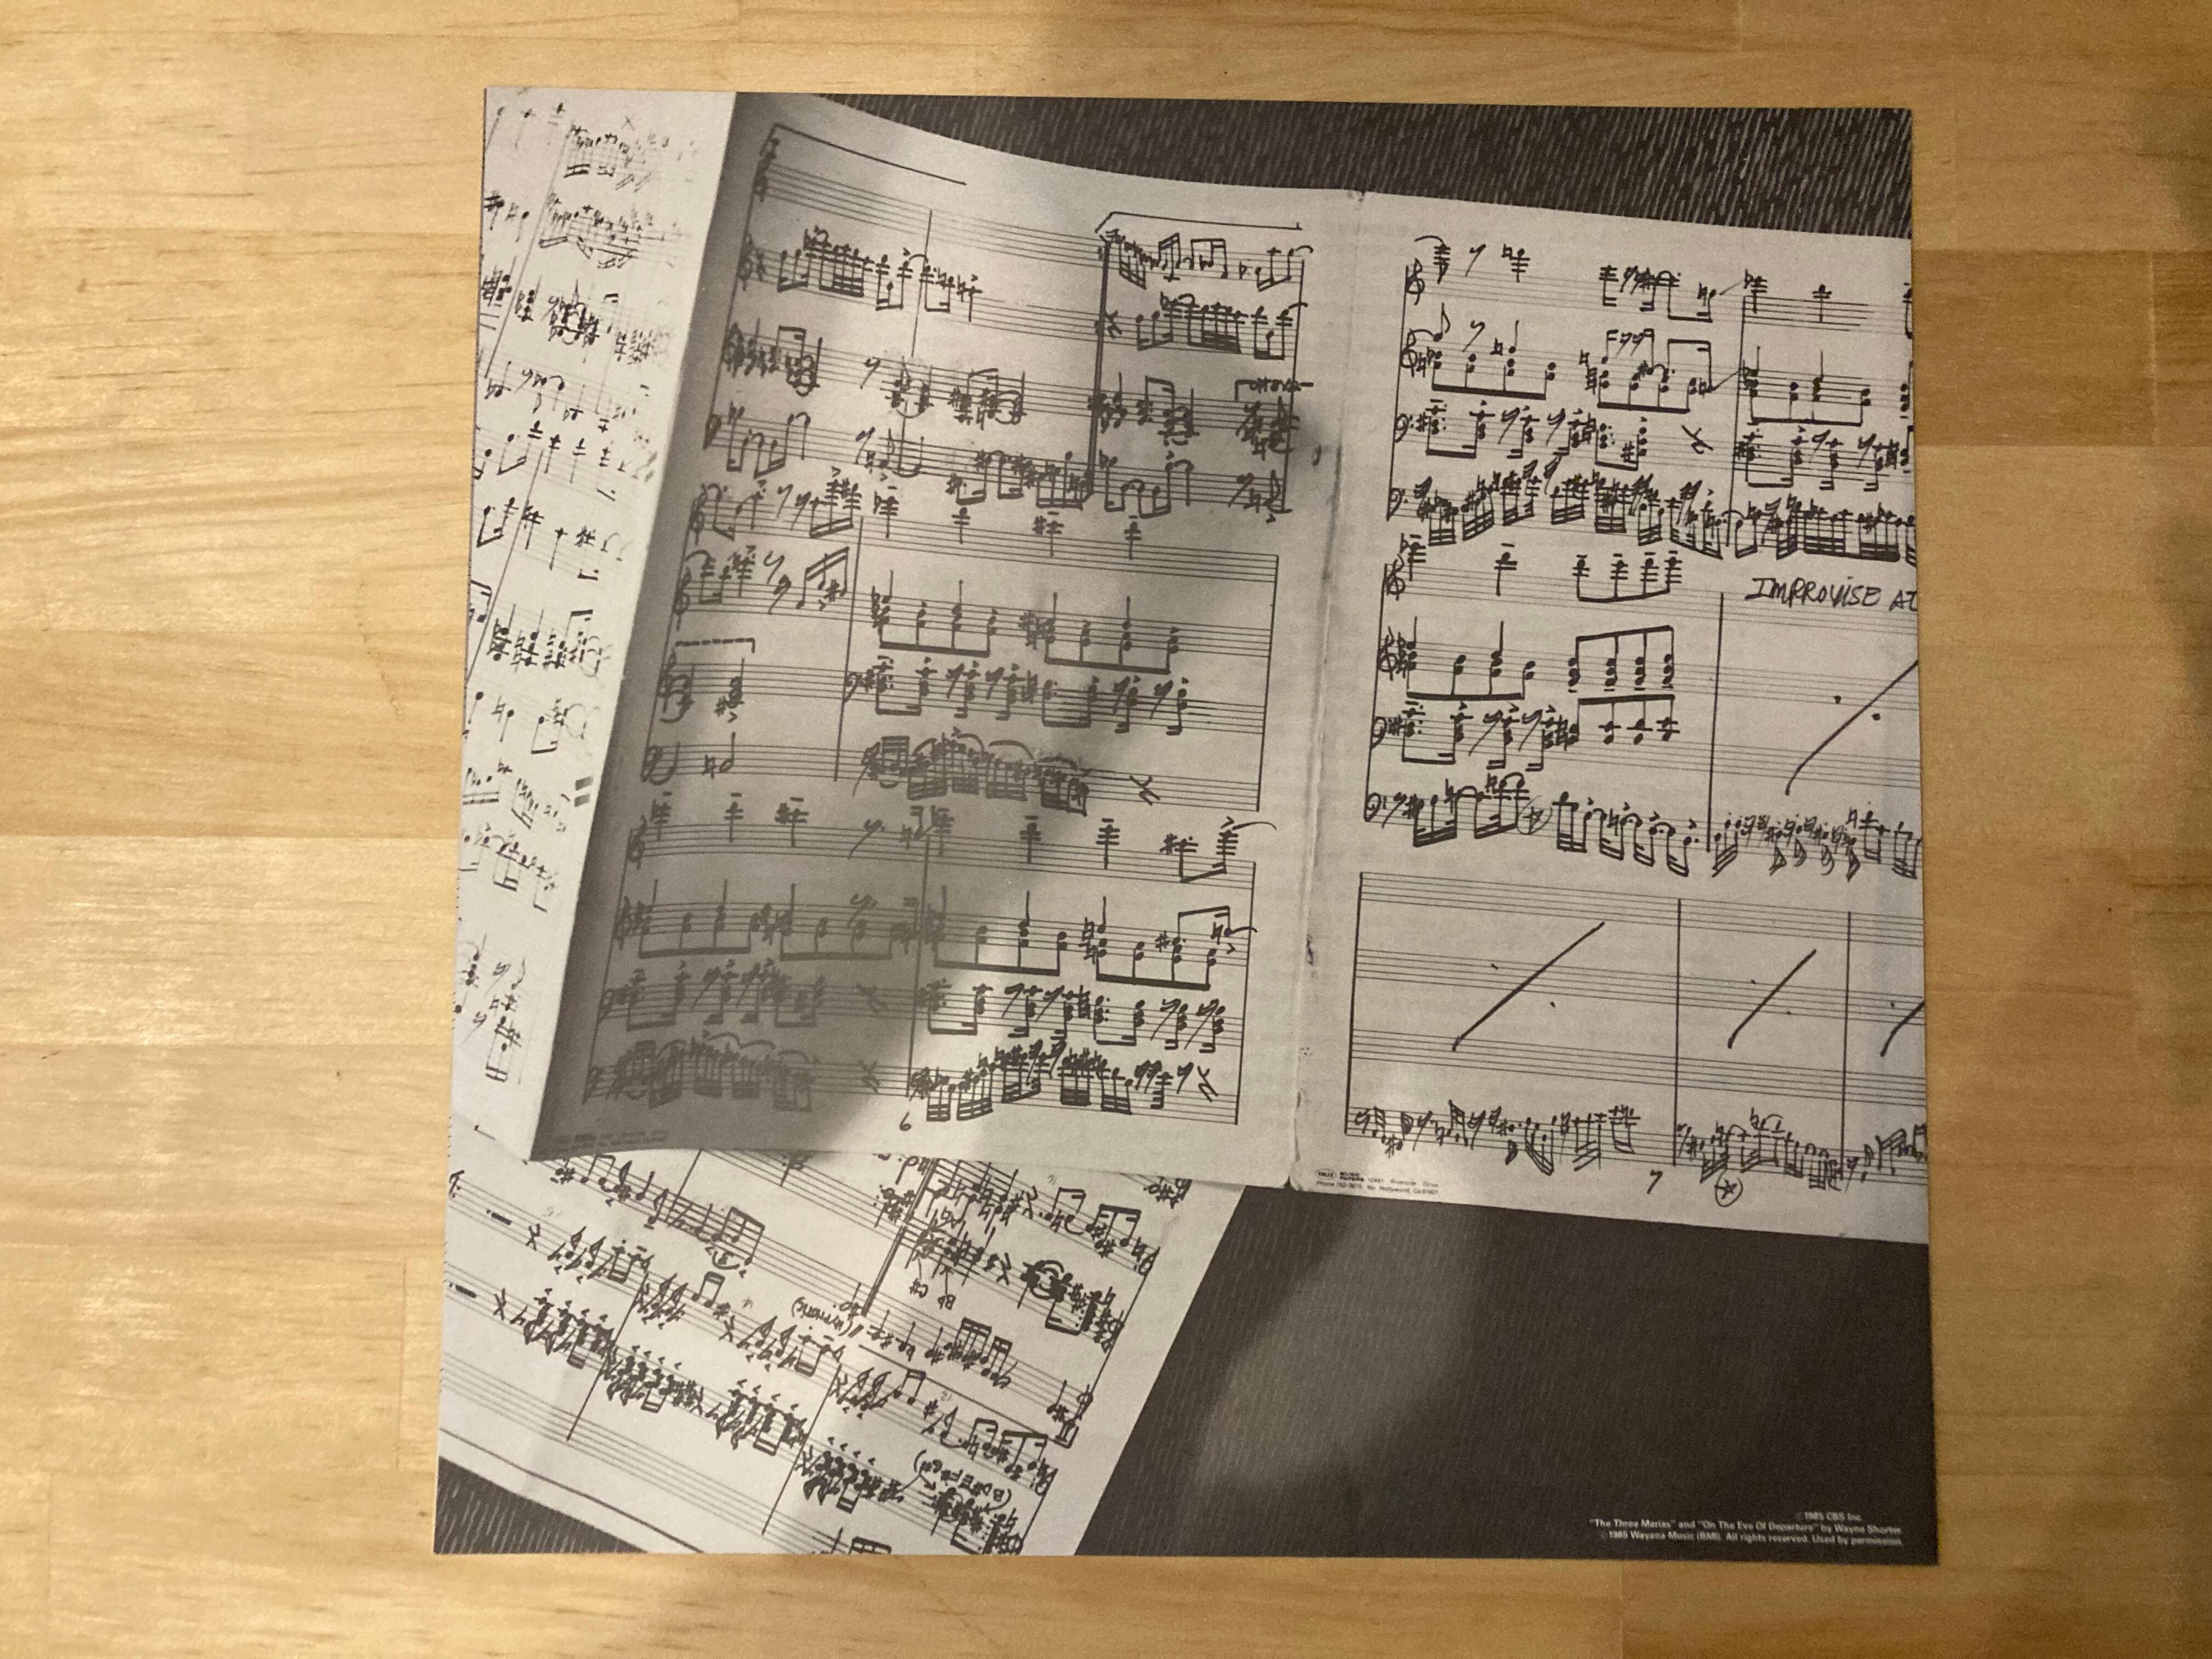 IMPROVISE AT
6
7
(RHYTHMIC)
Bb C#
Riverside Drive
No. Hollywood, Ca 91607
©1985 CBS Inc.
"The Three Marias" and "On The Eve Of Departure" by Wayne Shorter
©1985 Wayana Music (BMI). All rights reserved. Used by permission.